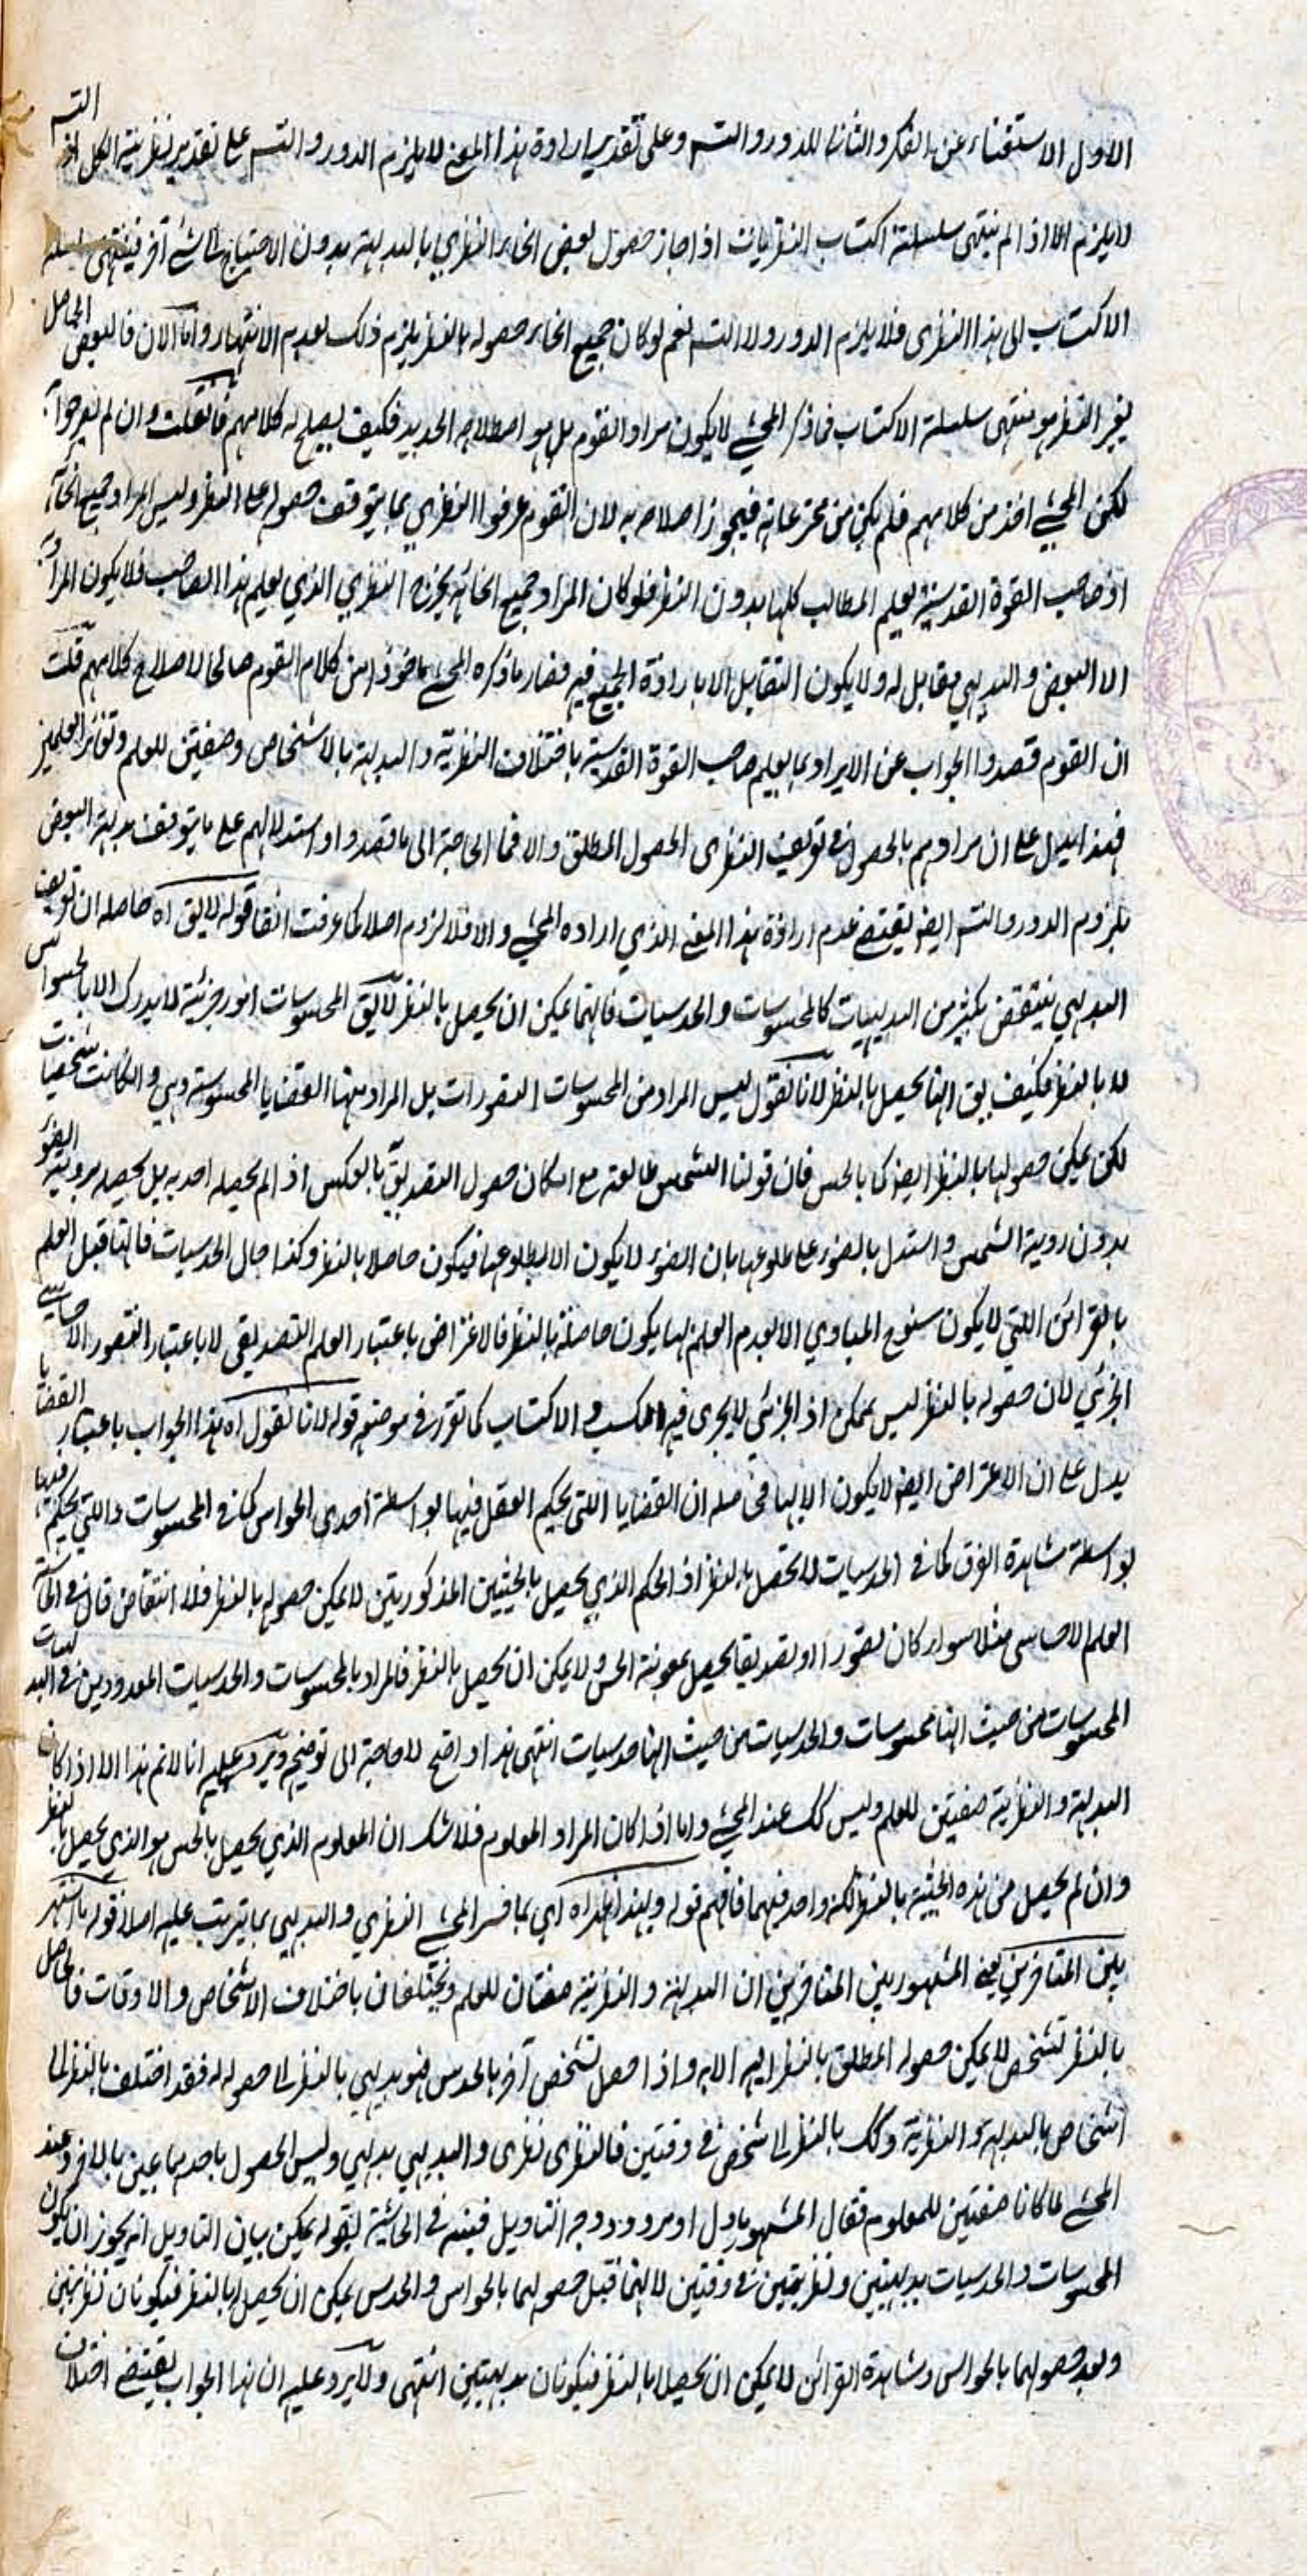 الاول الاستغناء عن الفكر والثانى للدور والتسم وعلى تقدير ارادة هذا المعنى لا يلزم الدور والتسم على تقدير نظرية الكل اذ التسم
لا يلزم الا اذا لم ينتهى سلسلة اكتساب النظريات اذا جاز حصول بعض انحاء النظري بالبديهة بدون الاحتياج الى شئ آخر فينتهى سلسلة
الاكتساب الى هذا النظرى فلا يلزم الدور ولا التسم نعم لو كان جميع انحاء حصوله بالنظر يلزم ذلك لعدم الانتهاء واما الآن فالبعض الحاصل
بغير النظر هو منتهى سلسلة الاكتساب فما ذكر المحشي لا يكون مراد القوم بل هو اصطلاحه الجديد فكيف يصلح له كلامهم فان قلت وان لم يصرحوا به
لكن المحشي اخذ من كلامهم فلم يكن من مخترعاته فيجوز اصلاحه به لان القوم عرفوا النظري بما يتوقف حصوله على النظر وليس المراد جميع انحائه
اذ صاحب القوة القدسية يعلم المطالب كلها بدون النظر فلو كان المراد جميع انحائه يخرج النظري الذي يعلم هذا الصاحب فلا يكون المراد به
الا البعض والبديهي مقابل له ولا يكون التقابل الا بارادة الجميع فيه فصار ما ذكره المحشي ماخوذا من كلام القوم صالحا لاصلاح كلامهم قلت
ان القوم قصدوا الجواب عن الايراد بما يعلم صاحب القوة القدسية باختلاف النظرية والبديهة بالاشخاص وصفتين للعلم وتغاير العلمين
فهذا يدل على ان مرادهم بالحصول في تعريف النظرى الحصول المطلق والا فما الحاجة الى ما قصدوا واستدلالهم على ما يتوقف بديهة البعض
بلزوم الدور والتسم ايضا يقتضي عدم ارادة هذا المعنى الذي اراده المحشي والا فلا لزوم اصلا كما عرفت آنفا قوله لا يق اه حاصله ان تعريف
البديهي ينتقض بكثير من البديهيات كالمحسوسات والحدسيات فانهما يمكن ان يحصل بالنظر لا يق المحسوسات امور جزئية لا يدرك الا بالحواس
لا بالنظر فكيف يق انها يحصل بالنظر لانا نقول ليس المراد من المحسوسات التصورات بل المراد منها القضايا المحسوسة وهي وان كانت شخصيات
لكن يمكن حصولها بالنظر ايضا كما بالحس فان قولنا الشمس طالعة مع امكان حصول التصديق بالعكس اذ لم يحصله احد به بل يحصله برؤية الضوء
بدون روية الشمس واستدل بالضوء على طلوعها بان الضوء لا يكون الا بطلوعها فيكون حاصلا بالنظر وكذا حال الحدسيات فانها قبل العلم
بالقرائن اللتي لا يكون سنوح المبادي الا بعدم العلم لها يكون حاصلة بالنظر فالاعتراض باعتبار العلم التصديقي لا باعتبار التصور الاحساسي
الجزئي لان حصوله بالنظر ليس بممكن اذ الجزئي لا يجرى فيه الكسب والاكتساب كما تقرر في موضعه قوله لانا نقول اه هذا الجواب باعتبار القضايا
يدل على ان الاعتراض ايضا لا يكون الا بها فحاصله ان القضايا اللتى يحكم العقل فيها بواسطة احدى الحواس كما في المحسوسات واللتي يحكم فيها
بواسطة مشاهدة القرائن كما في الحدسيات لا تحصل بالنظر اذ الحكم الذي يحصل بالحيثيتين المذكوريتين لا يمكن حصوله بالنظر فلا انتقاض قال في الحاشية
العلم الاحساسى مثلا سواء كان تصورا او تصديقا يحصل بمعونة الحس ولا يمكن ان يحصل بالنظر فالمراد بالمحسوسات والحدسيات المعدودين في البديهيات
المحسوسات من حيث انها محسوسات والحدسيات من حيث انها حدسيات انتهى هذا واضح لا حاجة الى توضيحه ويرد عليه انا لا نم هذا الا اذا كان
البديهة والنظرية صفتين للعلم وليس كك عند المحشي واما اذا كان المراد المعلوم فلا شك ان المعلوم الذي يحصل بالحس هو الذي يحصل بالنظر
وان لم يحصل من هذه الحيثية بالنظر لكنه واحد فيهما فافهم قوله وبهذا ظهر اه اي بما فسر المحشي النظري والبديهي بما يترتب عليه اصلا قوله ما اشتهر
بين المتاخرين يعني المشهور بين المتاخرين ان البديهة والنظرية صفتان للعلم ويختلفان باختلاف الاشخاص والاوقات فالحاصل
بالنظر لشخص لا يمكن حصوله المطلق بالنظر اليه الا به واذا حصل لشخص آخر بالحدس فهو بديهي بالنظر الى حصوله له فقد اختلف بالنظر الى
اشخاص بالبديهة والنظرية وكك بالنظر الى شخص في وقتين فالنظرى نظرى والبديهي بديهي وليس الحصول باحدهما عين بالآخر وعند
المحشي لما كانا صفتين للمعلوم فقال المشهور ماول او مردود وجه التاويل فبينه في الحاشية بقوله يمكن بيان التاويل انه يجوز ان يكون
المحسوسات والحدسيات بديهيتين ونظريتين في وقتين لانهما قبل حصولهما بالحواس والحدس يمكن ان يحصلا بالنظر فيكونان نظريتين
وبعد حصولهما بالحواس ومشاهدة القرائن لا يمكن ان يحصلا بالنظر فيكونان بديهيتين انتهى ولا يرد عليه ان هذا الجواب يقتضي اختلاف